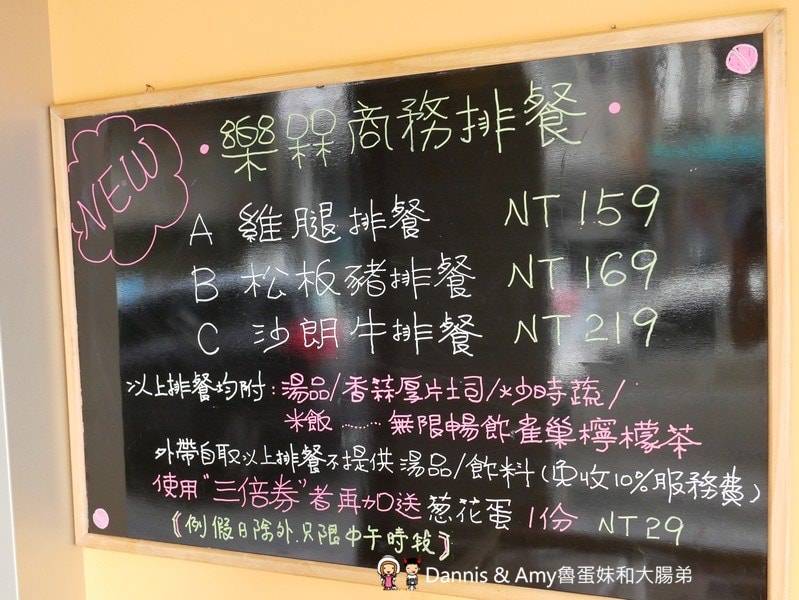 NEW
樂杲商務排餐
A 雞腿排餐 NT 159
B 松板豬排餐 NT 169
C 沙朗牛排餐 NT 219
以上排餐均附:湯品/香蒜厚片土司/炒時蔬/
米飯......... 無限暢飲雀巢檸檬茶
外帶自取以上排餐不提供湯品/飲料(免收10%服務費)
使用"三倍券"者再加送蔥花蛋1份 NT 29
《例假日除外.只限中午時段》
Dannis & Amy魯蛋妹和大腸弟